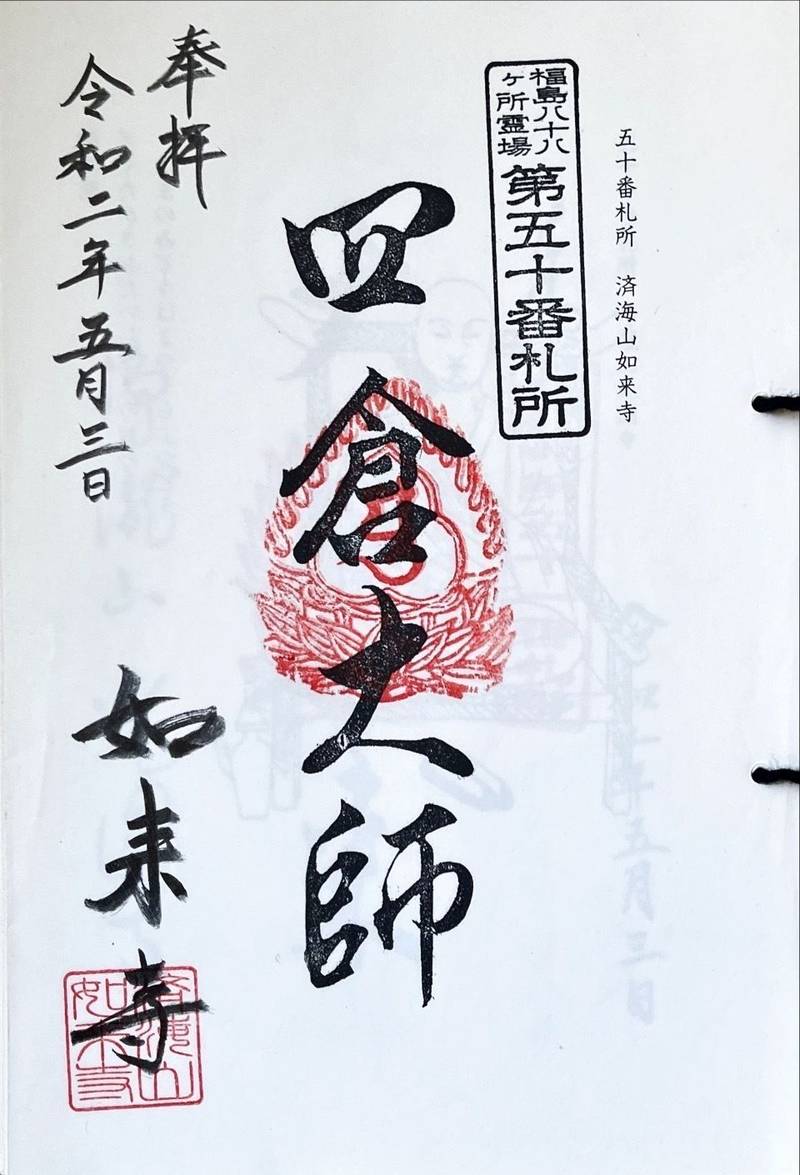 五十番札所　済海山如来寺
福島八十八
ヶ所霊場
第五十番札所
四倉大師
奉拝
令和二年五月三日
如来寺
済海山
如来寺